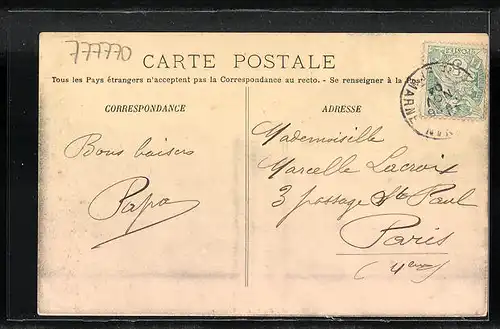 777770
CARTE POSTALE
Tous les Pays étrangers n'acceptent pas la Correspondance au recto. - Se renseigner à la Poste
CORRESPONDANCE
ADRESSE
Bons baisers
Papa
Mademoiselle
Marcelle Lacroix
3 passage St Paul
Paris
(4eme)
MARNE